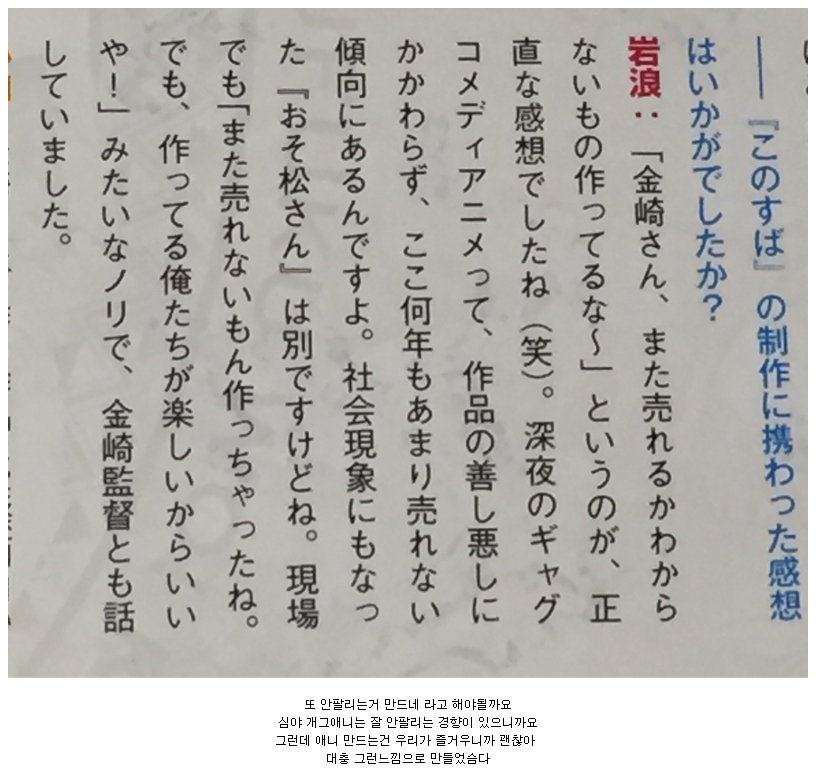 ――『このすば』の制作に携わった感想
はいかがでしたか?
岩浪:「金崎さん、また売れるかわから
ないもの作ってるな~」というのが、正
直な感想でしたね(笑)。深夜のギャグ
コメディアニメって、作品の善し悪しに
かかわらず、ここ何年もあまり売れない
傾向にあるんですよ。社会現象にもなっ
た『おそ松さん』は別ですけどね。現場
でも「また売れないもん作っちゃったね。
でも、作ってる俺たちが楽しいからいい
や!」みたいなノリで、金崎監督とも話
していました。
또 안팔리는거 만드네 라고 해야될까요
심야 개그애니는 잘 안팔리는 경향이 있으니까요
그런데 애니 만드는건 우리가 즐거우니까 괜찮아
대충 그런느낌으로 만들었슴다